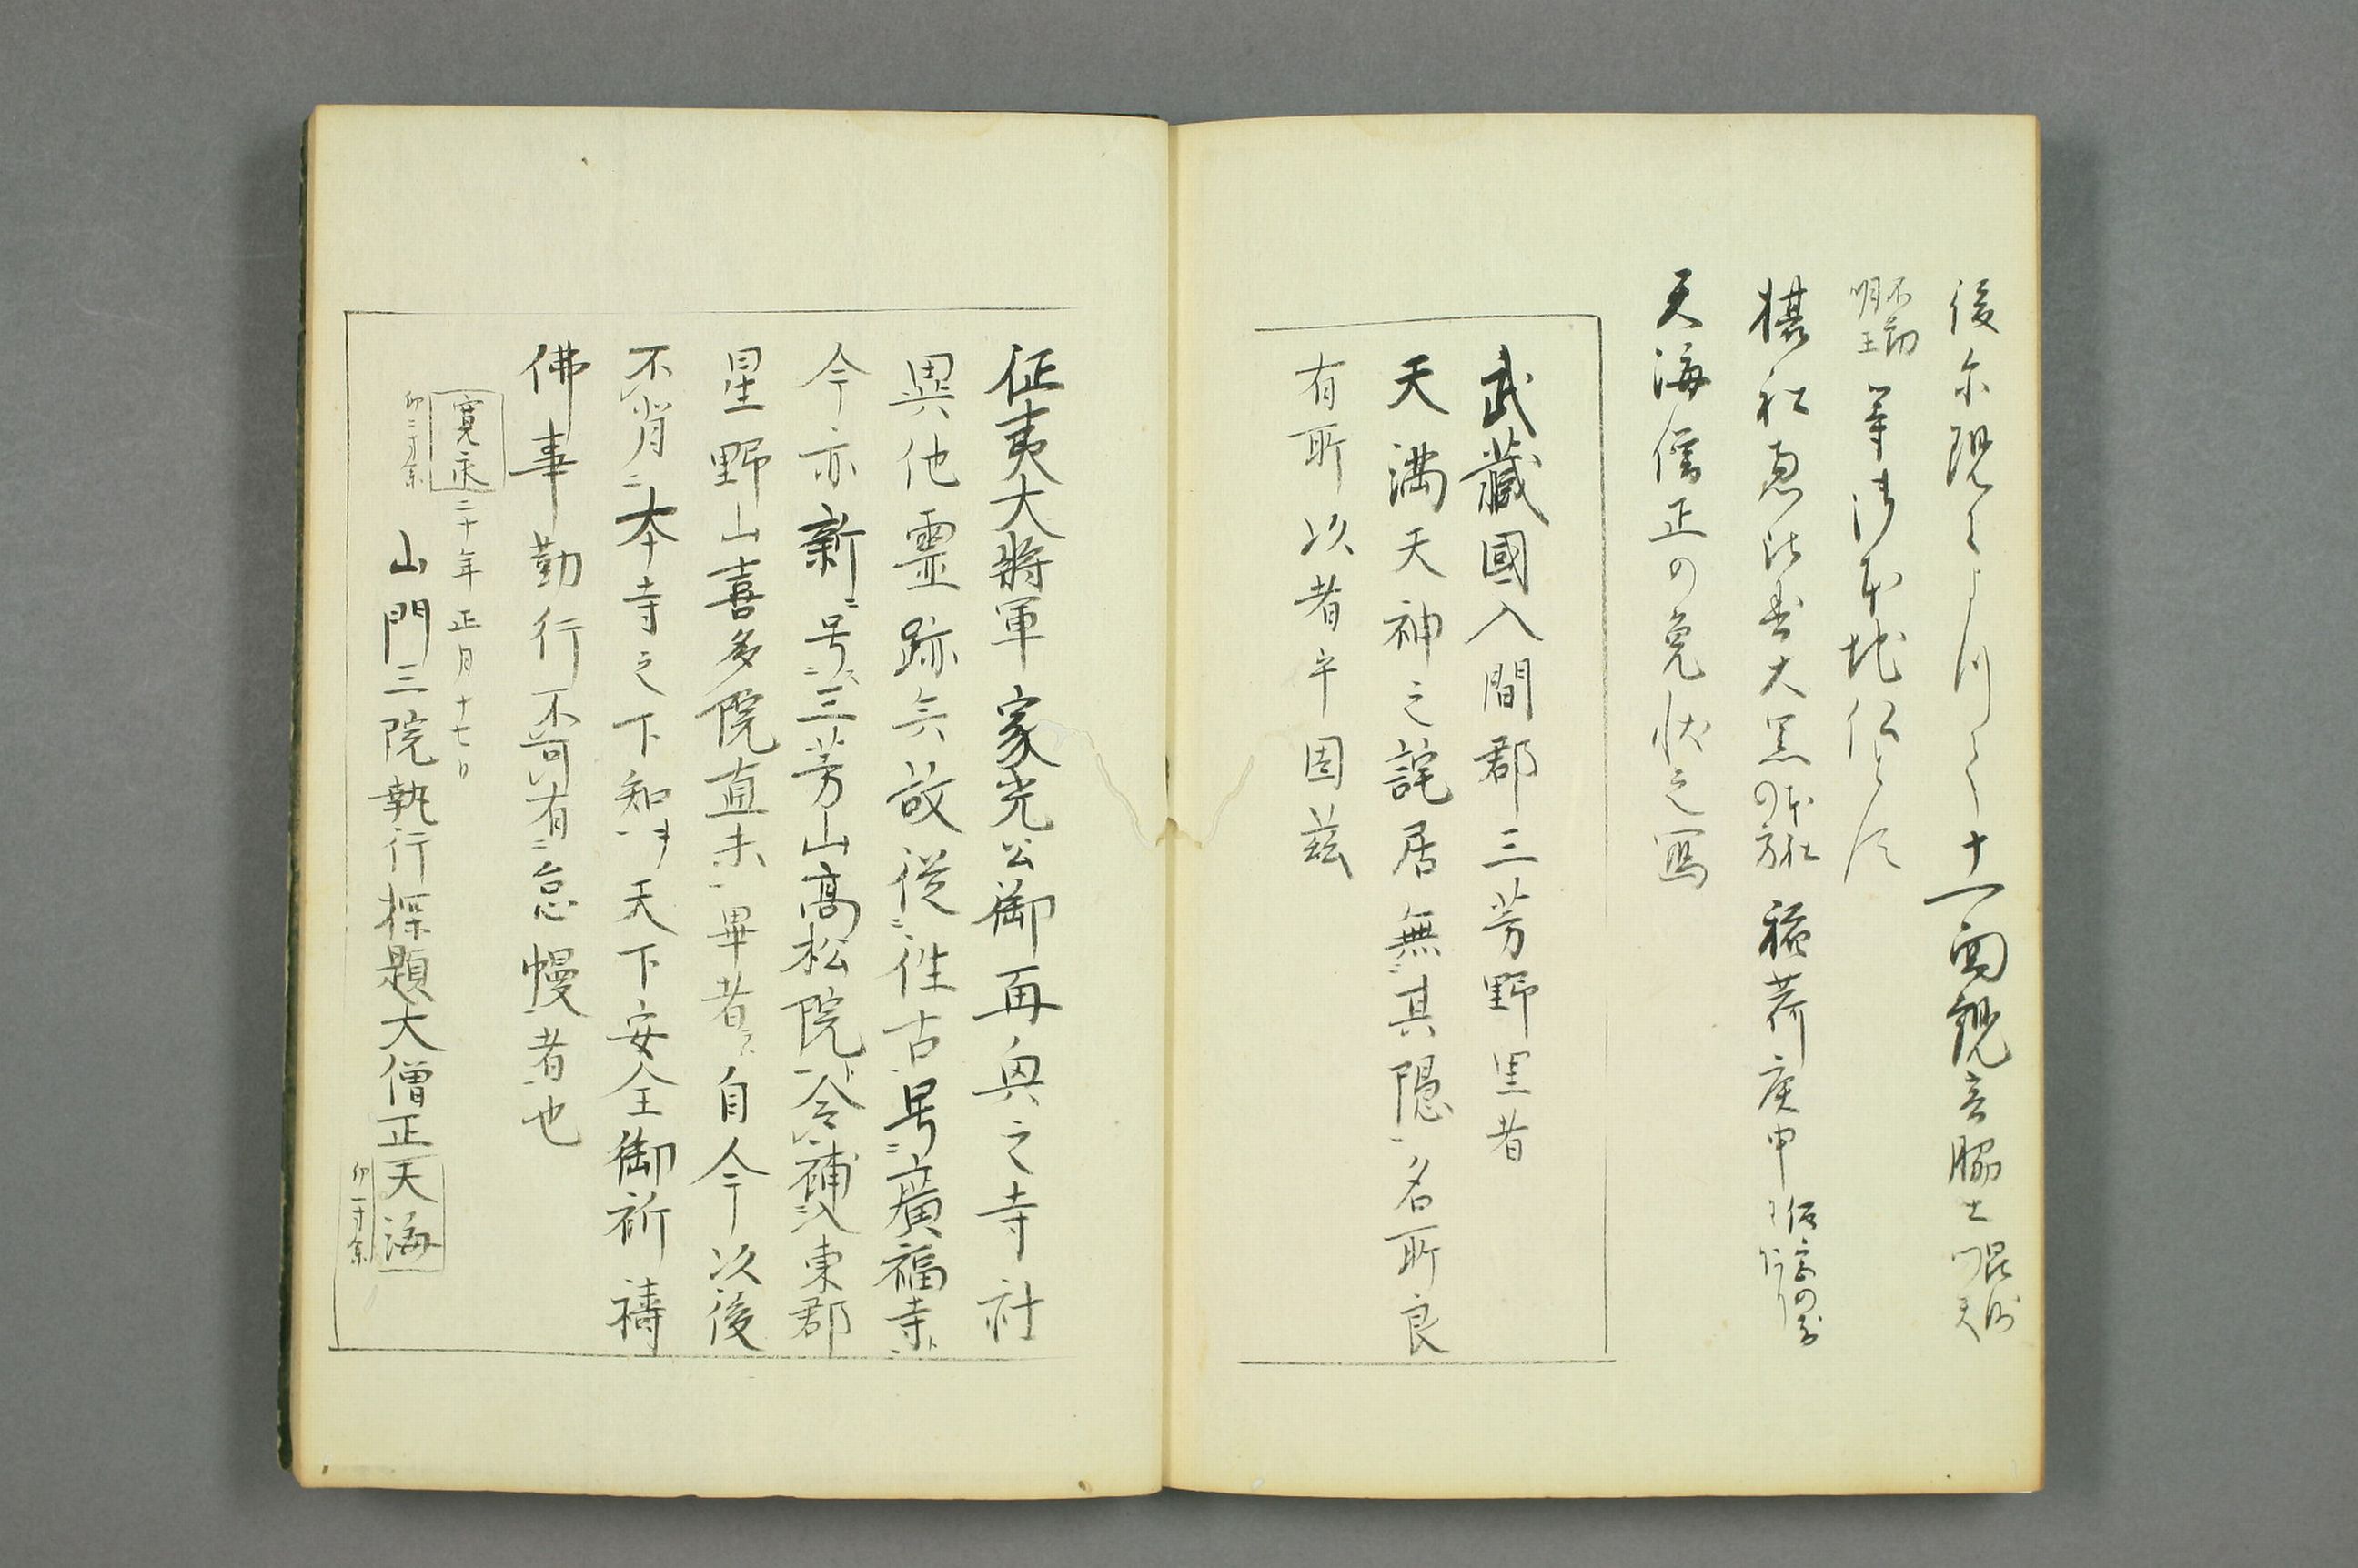 十一面観音脇士毘沙門天
不動明王等御本地仏
摂社 大黒 稲荷 庚申
天海僧正の免状之写
武藏國入間郡三芳野里者
天満天神之詫居無其隠名所良
有所以者乎因茲
征夷大將軍家光公御再興之寺社
異他霊跡矣故従往古号廣福寺
今亦新号三芳山高松院令補入東郡
星野山喜多院直末畢者自今以後
不肖本寺之下知天下安全御祈禱
佛事勤行不可有怠慢者也
寛永二十年正月十七日
印二寸余
山門三院執行探題大僧正天海
印一寸余